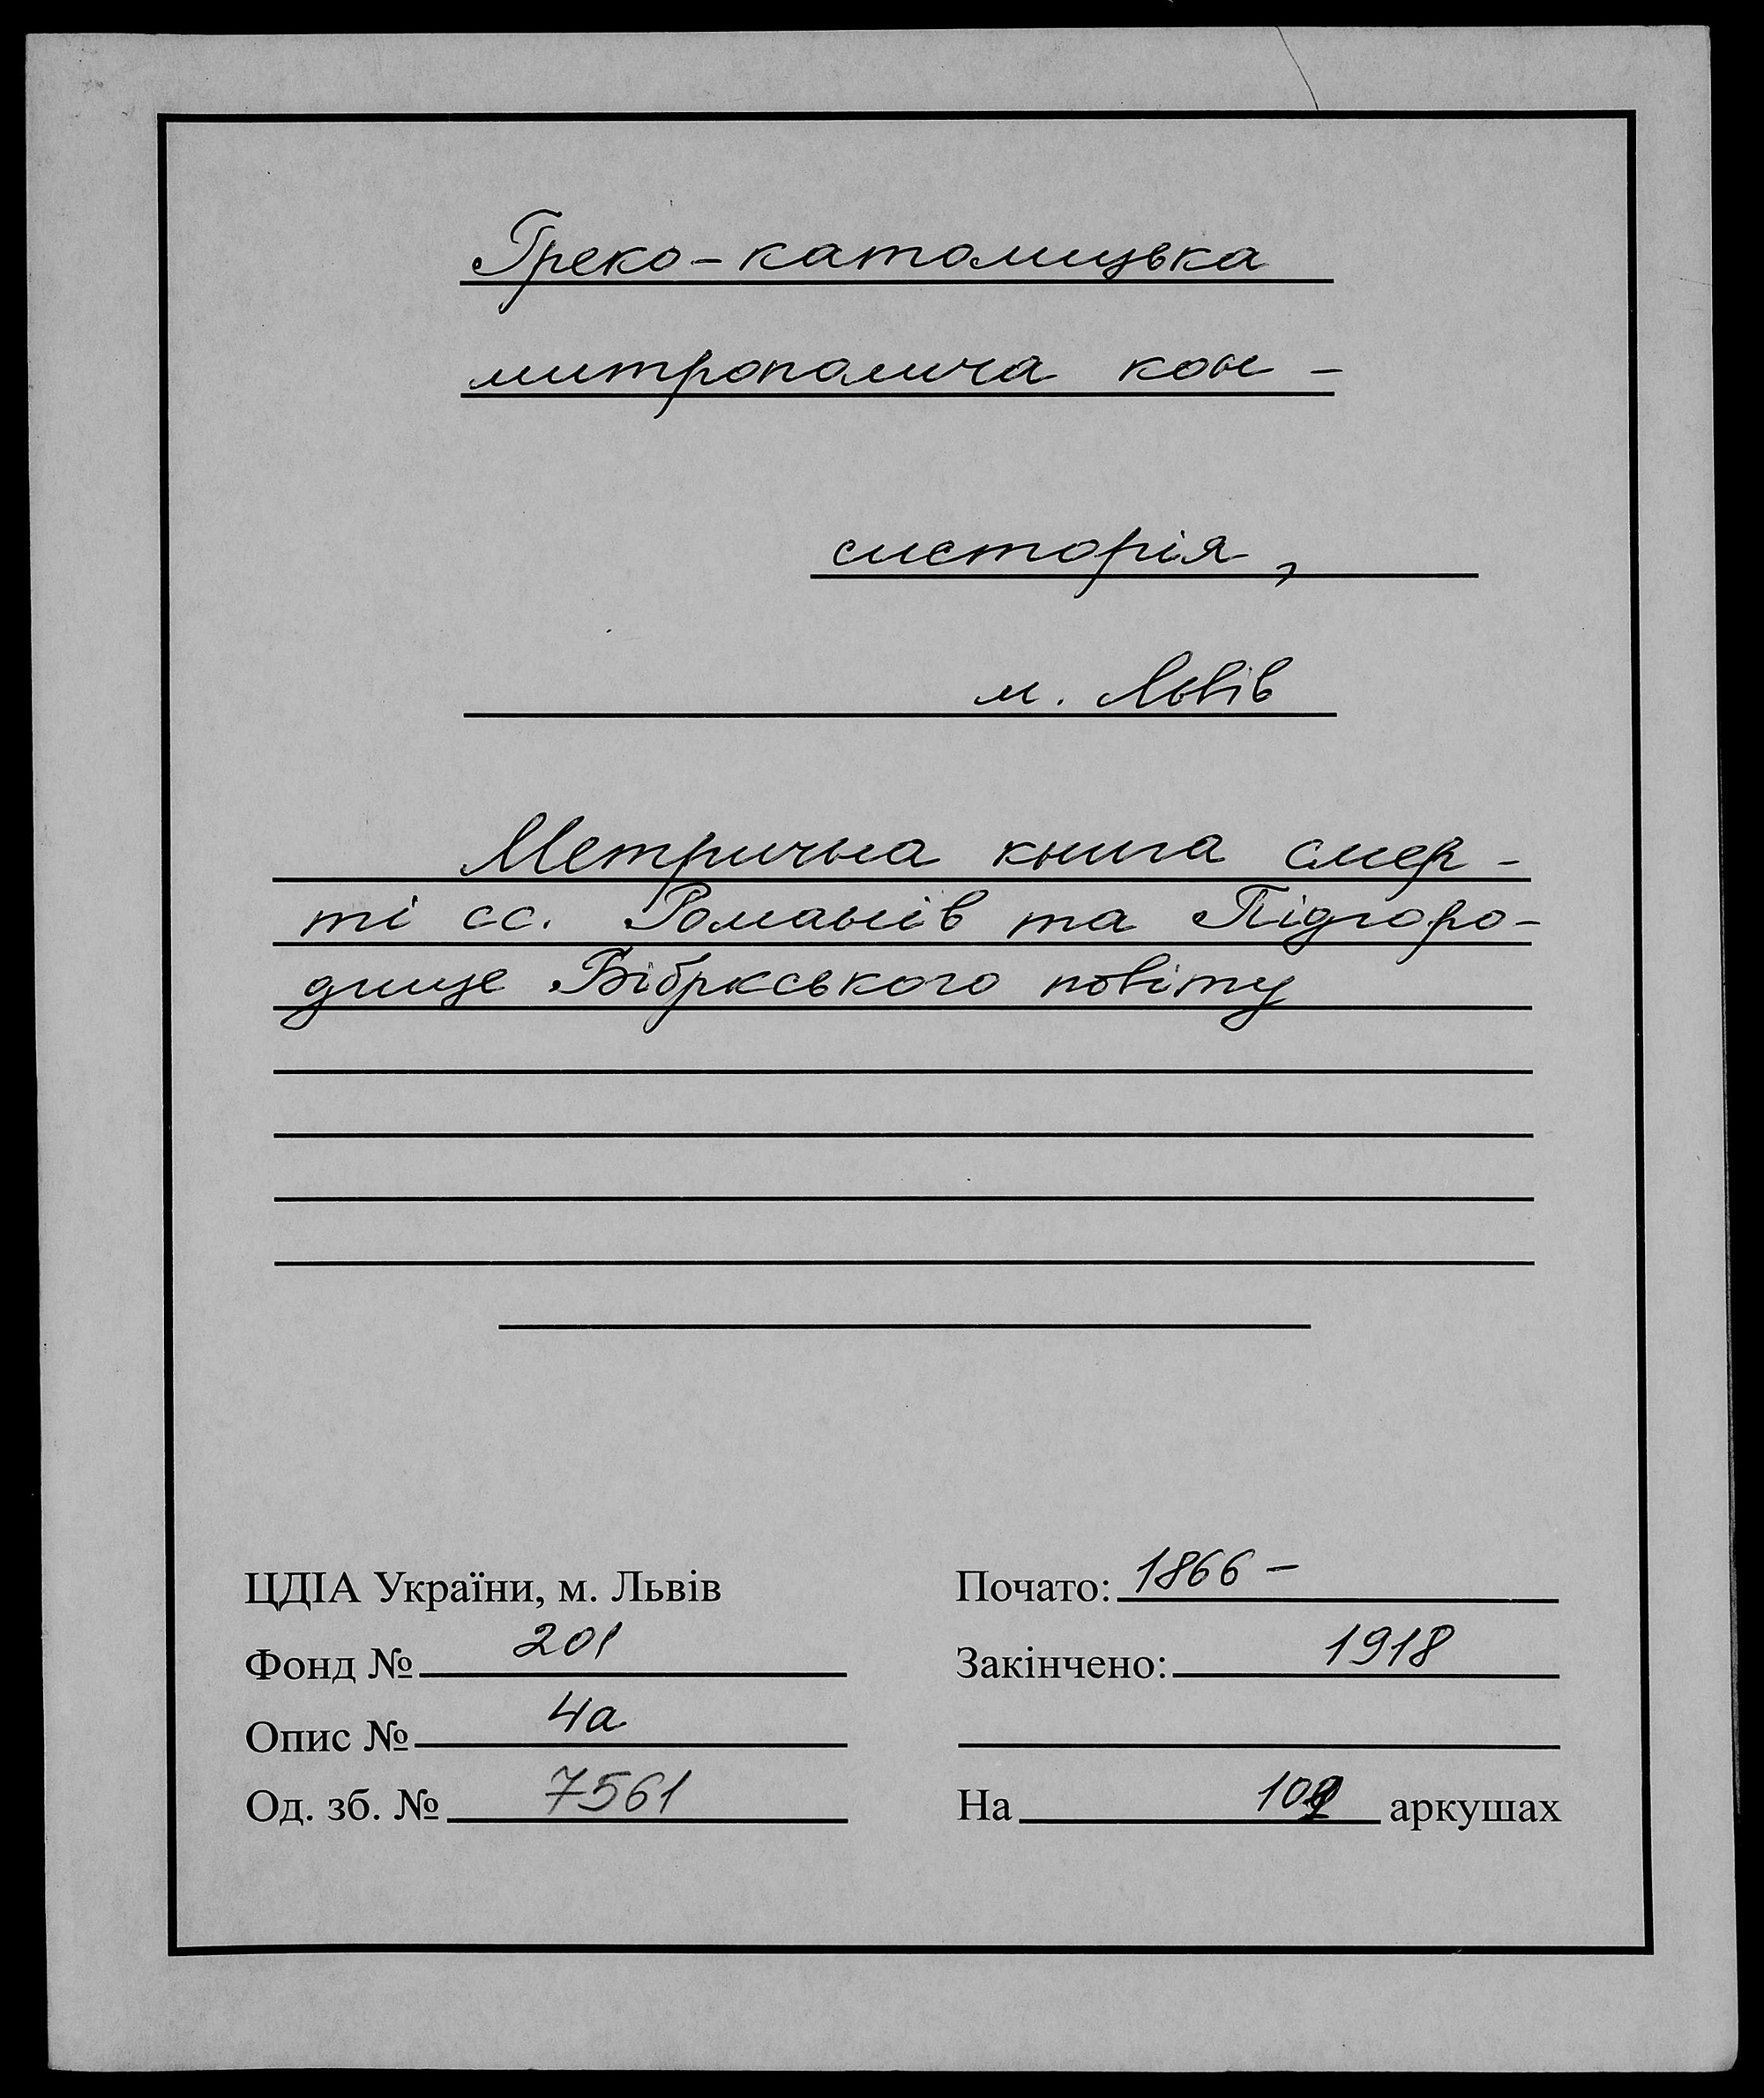 Греко-католицька
митрополича кон-
систорія,
м. Львів
Метрична книга смер-
ті сс. Романів та Підгоро-
дище Бібркського повіту
ЦДІА України, м. Львів
Фонд № 201
Опис № 4а
Од. зб. № 7561
Почато: 1866 -
Закінчено: 1918
На аркушах